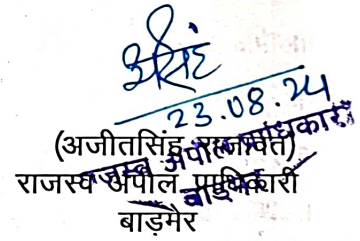 23.08.24
(अजीतसिंह राजावत)
राजस्व अपील प्राधिकारी
बाड़मेर
राजस्व अपील प्राधिकारी
बाड़मेर